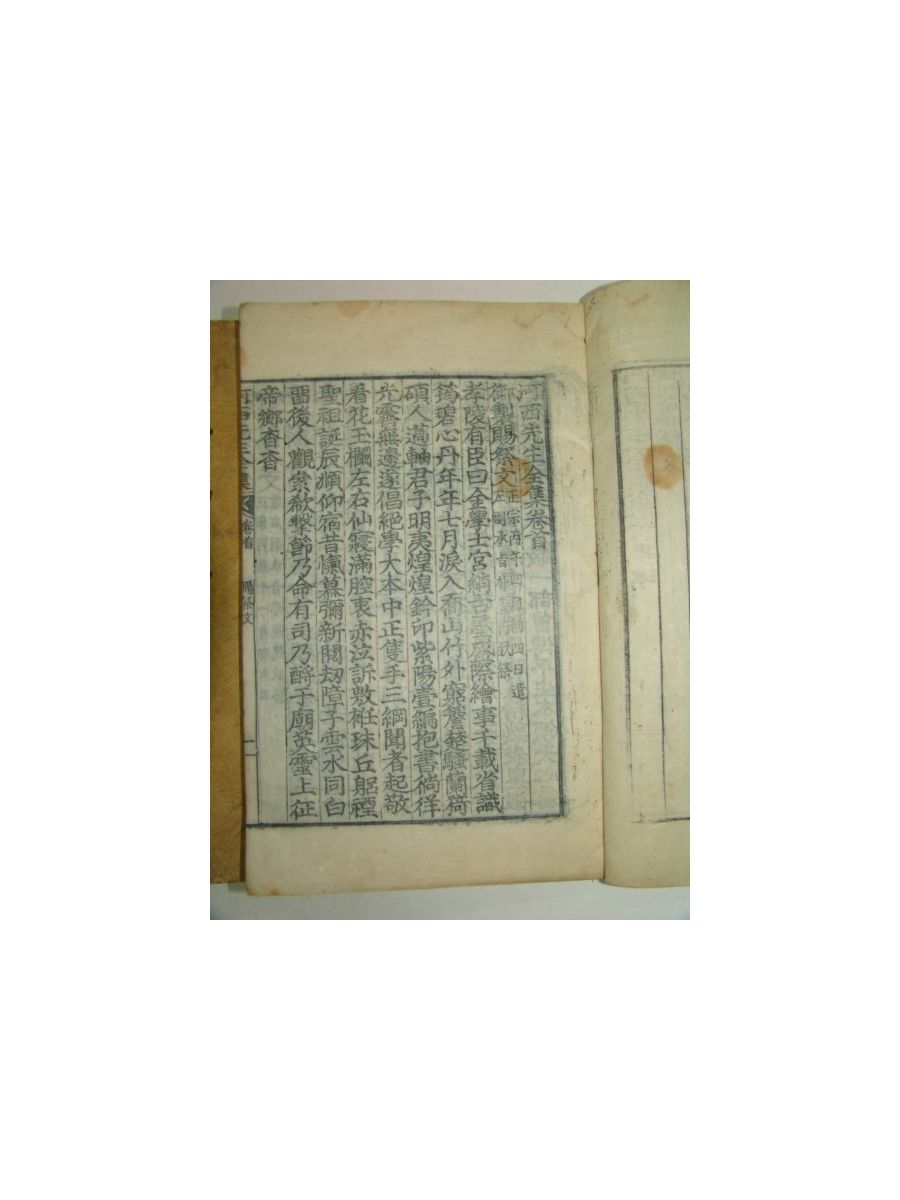 河西先生全集卷首
御製賜祭文 正宗丙午四 四日遣
左副承旨 致祭
孝陵有臣曰金學士宮綃古墨盛際繪事千載省識
篤碧心丹年年七月淚入喬山竹外窮簷楚騷蘭荷
碩人薖軸君子明夷煌煌鈐印紫陽壹編抱書徜徉
光霽無邊遂倡絕學大本中正隻手三綱聞者起敬
看花玉欄左右仙寢滿腔衷赤泣訴敷衽珠丘躬禋
聖祖誕辰頫仰宿昔愾慕彌新闊劫障子雲水同白
留後人觀纍欷擊節乃命有司乃酹于廟英靈上征
帝鄉杳杳
河西先生全集 卷首 賜祭文 一